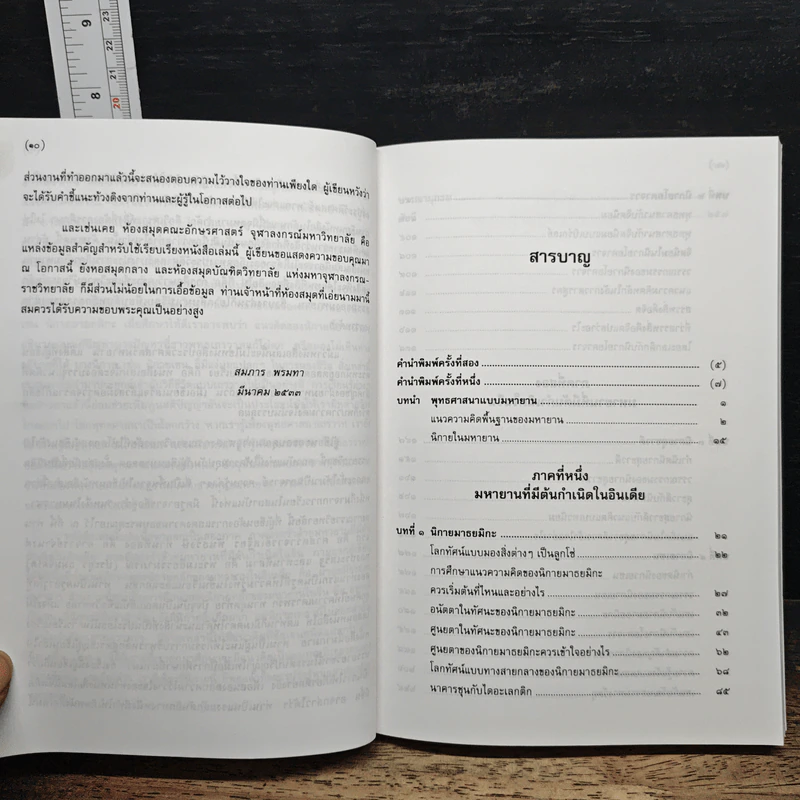 9
8
23
22
21
20
(๑๐)
ส่วนงานที่ทำออกมาแล้วนี้จะสนองตอบความไว้วางใจของท่านเพียงใด ผู้เขียนหวังว่า
จะได้รับคำชี้แนะท้วงติงจากท่านและผู้รู้ในโอกาสต่อไป
และเช่นเคย ห้องสมุดคณะอักษรศาสตร์ จุฬาลงกรณ์มหาวิทยาลัย คือ
แหล่งข้อมูลสำคัญสำหรับใช้เรียบเรียงหนังสือเล่มนี้ ผู้เขียนขอแสดงความขอบคุณมา
ณ โอกาสนี้ ยังหอสมุดกลาง และห้องสมุดบัณฑิตวิทยาลัย แห่งมหาจุฬาลงกรณ-
ราชวิทยาลัย ก็มีส่วนไม่น้อยในการเอื้อข้อมูล ท่านเจ้าหน้าที่ห้องสมุดที่เอ่ยนามมานี้
สมควรได้รับความขอบพระคุณเป็นอย่างสูง
สมภาร พรมทา
มีนาคม ๒๕๓๓
สารบาญ
คำนำพิมพ์ครั้งที่สอง (๕)
คำนำพิมพ์ครั้งที่หนึ่ง (๗)
บทนำ พุทธศาสนาแบบมหายาน ๑
แนวความคิดพื้นฐานของมหายาน ๒
นิกายในมหายาน ๑๕
ภาคที่หนึ่ง
มหายานที่มีต้นกำเนิดในอินเดีย
บทที่ ๑ นิกายมาธยมิกะ ๒๑
โลกทัศน์แบบมองสิ่งต่างๆ เป็นลูกโซ่ ๒๒
การศึกษาแนวความคิดของนิกายมาธยมิกะ
ควรเริ่มต้นที่ไหนและอย่างไร ๒๗
อนัตตาในทัศนะของนิกายมาธยมิกะ ๓๒
ศูนยตาในทัศนะของนิกายมาธยมิกะ ๔๓
ศูนยตาของนิกายมาธยมิกะควรเข้าใจอย่างไร ๖๒
โลกทัศน์แบบทางสายกลางของนิกายมาธยมิกะ ๖๘
นาคารชุนกับไดอะเลกติก ๘๕